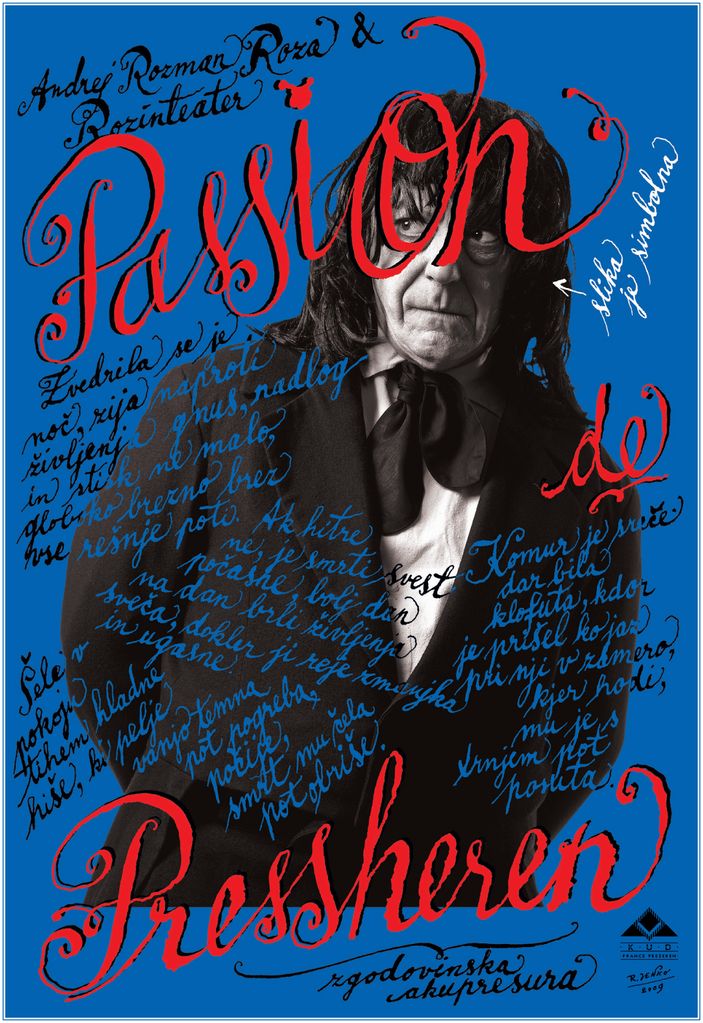 Andrej Rozman Roza &
Rozinteater
Passion
slika
je simbolna
de
Zvedrila se je
noč, zija naproti
življenja gnus, nadlog
in stisk ne malo,
globoko brezno brez
vse rešnje poti.
Ak hitre
ne, je smrti svest
počasne, bolj dan
na dan brli življenja
sveča, dokler ji reje zmanjka
in ugasne.
Komur je sreče
dar bila
klofuta, kdor
je prišel ko jaz
pri nji v zamero,
kjer hodi,
mu je s
trnjem pot
posuta.
Šele v
pokoju
tihem hladne
hiše, ki pelje
vanjo temna
pot pogreba,
počije,
smrt mu čela
pot obriše.
Pressheren
zgodovinska
akupresura
KUD
FRANCE PREŠEREN
R. JENKO
2009